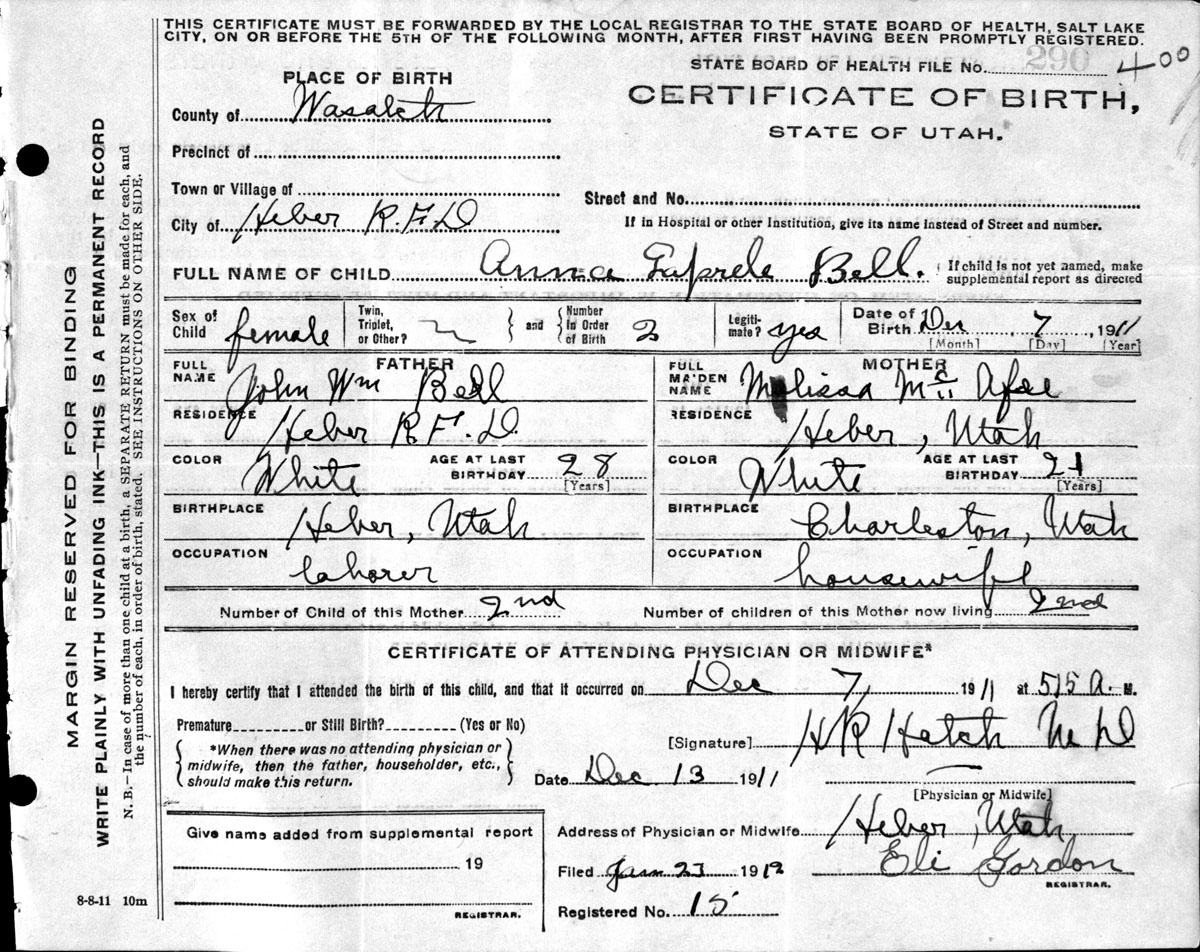 THIS CERTIFICATE MUST BE FORWARDED BY THE LOCAL REGISTRAR TO THE STATE BOARD OF HEALTH, SALT LAKE
CITY, ON OR BEFORE THE 5TH OF THE FOLLOWING MONTH, AFTER FIRST HAVING BEEN PROMPTLY REGISTERED.
STATE BOARD OF HEALTH FILE No. 290 400
PLACE OF BIRTH
CERTIFICATE OF BIRTH,
STATE OF UTAH.
County of Wasatch
Precinct of
Town or Village of
Street and No.
City of Heber R.F.D
If in Hospital or other Institution, give its name instead of Street and number.
FULL NAME OF CHILD Anna Bell. { If child is not yet named, make
supplemental report as directed
Sex of Child female
Twin, Triplet, or Other?
and
Number in Order of Birth 2
Legitimate? yes
Date of Birth Dec 7, 1911
[Month] [Day] [Year]
FATHER
FULL NAME John Wm Bell
RESIDENCE Heber R.F.D.
COLOR White AGE AT LAST BIRTHDAY 28
[Years]
BIRTHPLACE Heber, Utah
OCCUPATION laborer
MOTHER
FULL MAIDEN NAME Melissa Mc Afee
RESIDENCE Heber, Utah
COLOR White AGE AT LAST BIRTHDAY 21
[Years]
BIRTHPLACE Charleston, Utah
OCCUPATION housewife
Number of Child of this Mother 2nd Number of children of this Mother now living 2nd
CERTIFICATE OF ATTENDING PHYSICIAN OR MIDWIFE*
I hereby certify that I attended the birth of this child, and that it occurred on Dec 7, 1911 at 515 A. M.
Premature or Still Birth? (Yes or No)
{ *When there was no attending physician or
midwife, then the father, householder, etc.,
should make this return. }
[Signature] HR Hatch M D
Date Dec 13 1911
[Physician or Midwife]
Give name added from supplemental report
19
REGISTRAR.
Address of Physician or Midwife Heber, Utah
Filed Jan 23 1912 Eli Gordon
REGISTRAR.
Registered No. 15
8-8-11 10m
MARGIN RESERVED FOR BINDING
WRITE PLAINLY WITH UNFADING INK—THIS IS A PERMANENT RECORD
N. B.—In case of more than one child at a birth, a SEPARATE RETURN must be made for each, and
the number of each, in order of birth, stated. SEE INSTRUCTIONS ON OTHER SIDE.